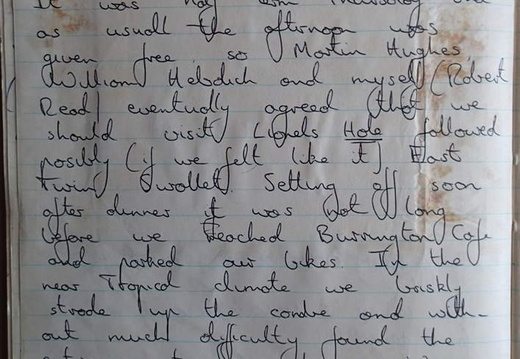 It was half term Thursday and
as usuall the afternoon was
given free so Martin Hughes
William Helsdich and myself (Robert
Read) eventually agreed that we
should visit Lionels Hole followed
possibly (if we felt like it) East
Twin Swollet. Setting off soon
after dinner it was not long
before we reached Burrington Cafe
and parked our bikes. In the
near Tropical climate we briskly
strode up the combe and with-
out much difficulty found the